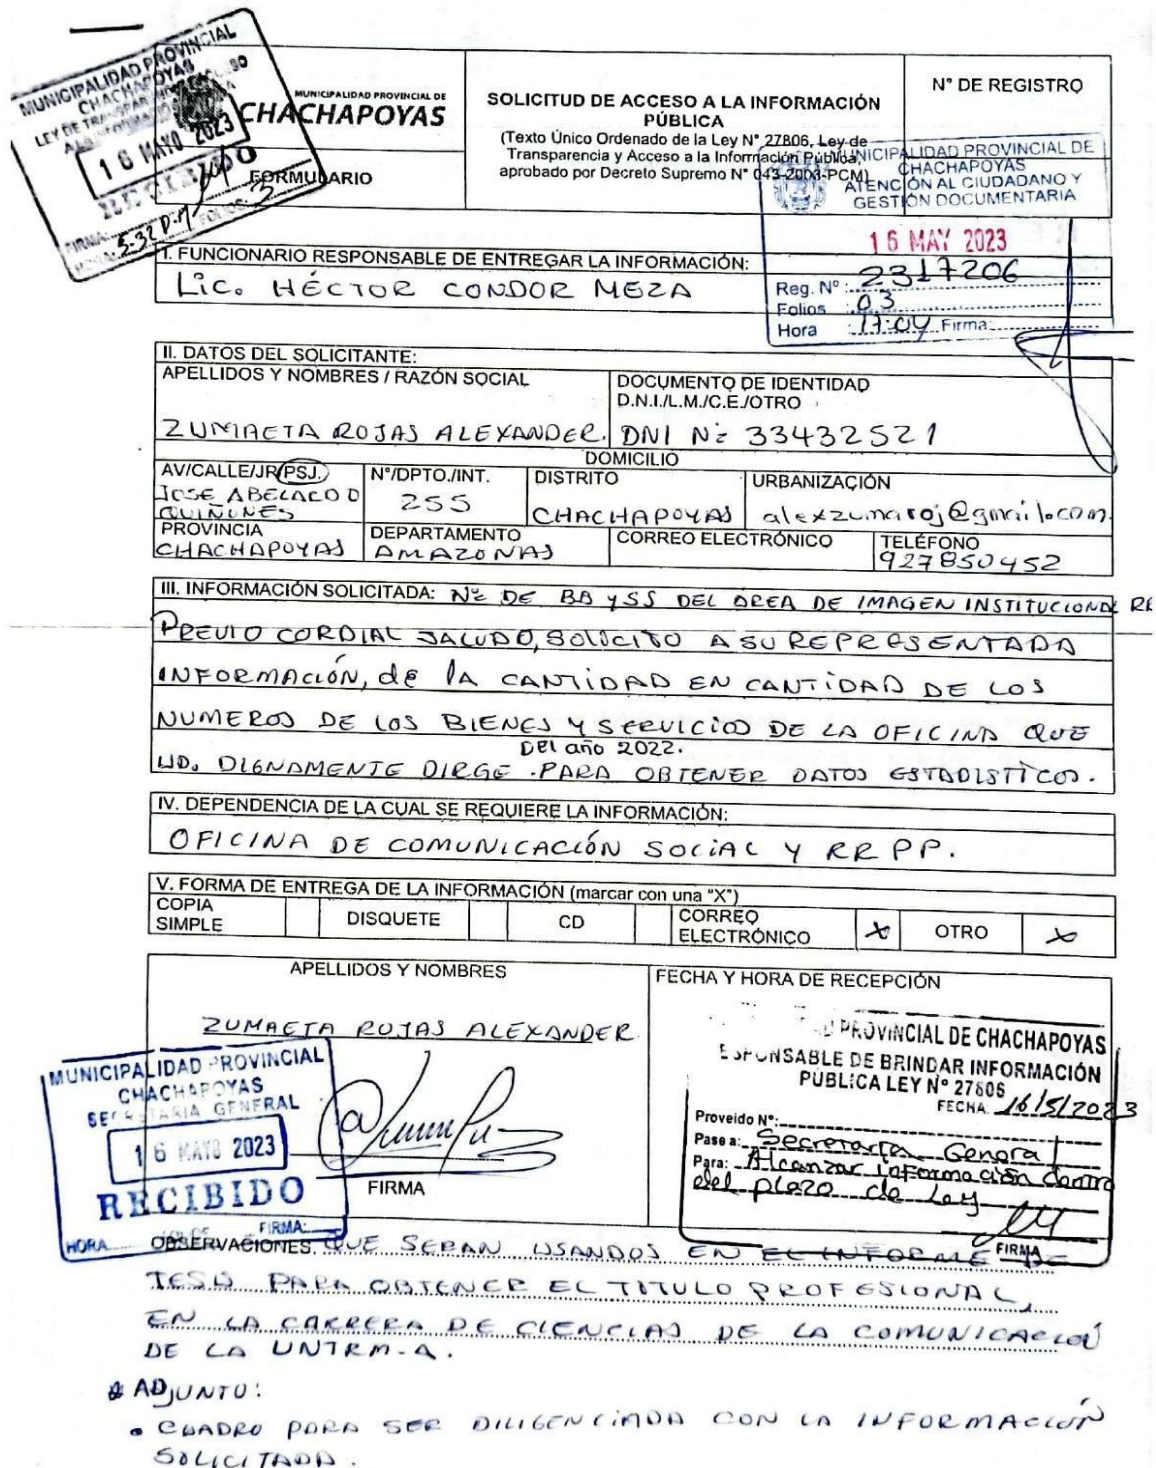 MUNICIPALIDAD PROVINCIAL
CHACHAPOYAS
LEY DE
16 MAYO 2023
RECIBIDO
FIRMA:
5-32 P.M FOLIOS: 3
MUNICIPALIDAD PROVINCIAL DE
CHACHAPOYAS
FORMULARIO
SOLICITUD DE ACCESO A LA INFORMACIÓN
PÚBLICA
(Texto Único Ordenado de la Ley N° 27806, Ley de
Transparencia y Acceso a la Información Pública,
aprobado por Decreto Supremo N° 043-2003-PCM)
N° DE REGISTRO
MUNICIPALIDAD PROVINCIAL DE
CHACHAPOYAS
ATENCIÓN AL CIUDADANO Y
GESTIÓN DOCUMENTARIA
16 MAY 2023
Reg. N° : 2317206
Folios : 03
Hora : 17:04 Firma:
I. FUNCIONARIO RESPONSABLE DE ENTREGAR LA INFORMACIÓN:
Lic. HÉCTOR CONDOR MEZA
II. DATOS DEL SOLICITANTE:
APELLIDOS Y NOMBRES / RAZÓN SOCIAL
DOCUMENTO DE IDENTIDAD
D.N.I./L.M./C.E./OTRO
ZUMAETA ROJAS ALEXANDER. DNI Nº 33432521
DOMICILIO
AV/CALLE/JR/PSJ. N°/DPTO./INT. DISTRITO URBANIZACIÓN
JOSE ABELARDO
QUIÑONES 255 CHACHAPOYAS alexzumaroj@gmail.com
PROVINCIA DEPARTAMENTO CORREO ELECTRÓNICO TELÉFONO
CHACHAPOYAS AMAZONAS 927850452
III. INFORMACIÓN SOLICITADA: Nº DE BB YSS DEL AREA DE IMAGEN INSTITUCIONAL
PREVIO CORDIAL SALUDO, SOLICITO A SU REPRESENTADA
INFORMACIÓN, de lA CANTIDAD EN CANTIDAD DE LOS
NUMEROS DE LOS BIENES Y SERVICIOS DE LA OFICINA QUE
Del año 2022.
UD. DIGNAMENTE DIRGE .PARA OBTENER DATOS ESTADISTICOS.
IV. DEPENDENCIA DE LA CUAL SE REQUIERE LA INFORMACIÓN:
OFICINA DE COMUNICACIÓN SOCIAL Y RR PP.
V. FORMA DE ENTREGA DE LA INFORMACIÓN (marcar con una "X")
COPIA
SIMPLE
DISQUETE
CD
CORREO
ELECTRÓNICO X
OTRO X
APELLIDOS Y NOMBRES
ZUMAETA ROJAS ALEXANDER
FIRMA
FECHA Y HORA DE RECEPCIÓN
PROVINCIAL DE CHACHAPOYAS
ESPONSABLE DE BRINDAR INFORMACIÓN
PÚBLICA LEY N° 27806
FECHA: 16/5/2023
Proveido N°:
Pase a: Secretaría General
Para: Alcanzar información dentro
del plazo de Ley
FIRMA
MUNICIPALIDAD PROVINCIAL
CHACHAPOYAS
SECRETARIA GENERAL
16 MAYO 2023
RECIBIDO
HORA FIRMA:
OBSERVACIONES: QUE SERAN USANDOS EN EL INFORME DE
TESIS PARA OBTENER EL TITULO PROFESIONAL,
EN LA CARRERA DE CIENCIAS DE LA COMUNICACIÓN
DE LA UNTRM-A.
ADJUNTO:
• CUADRO PARA SER DILIGENCIADA CON LA INFORMACIÓN
SOLICITADA.